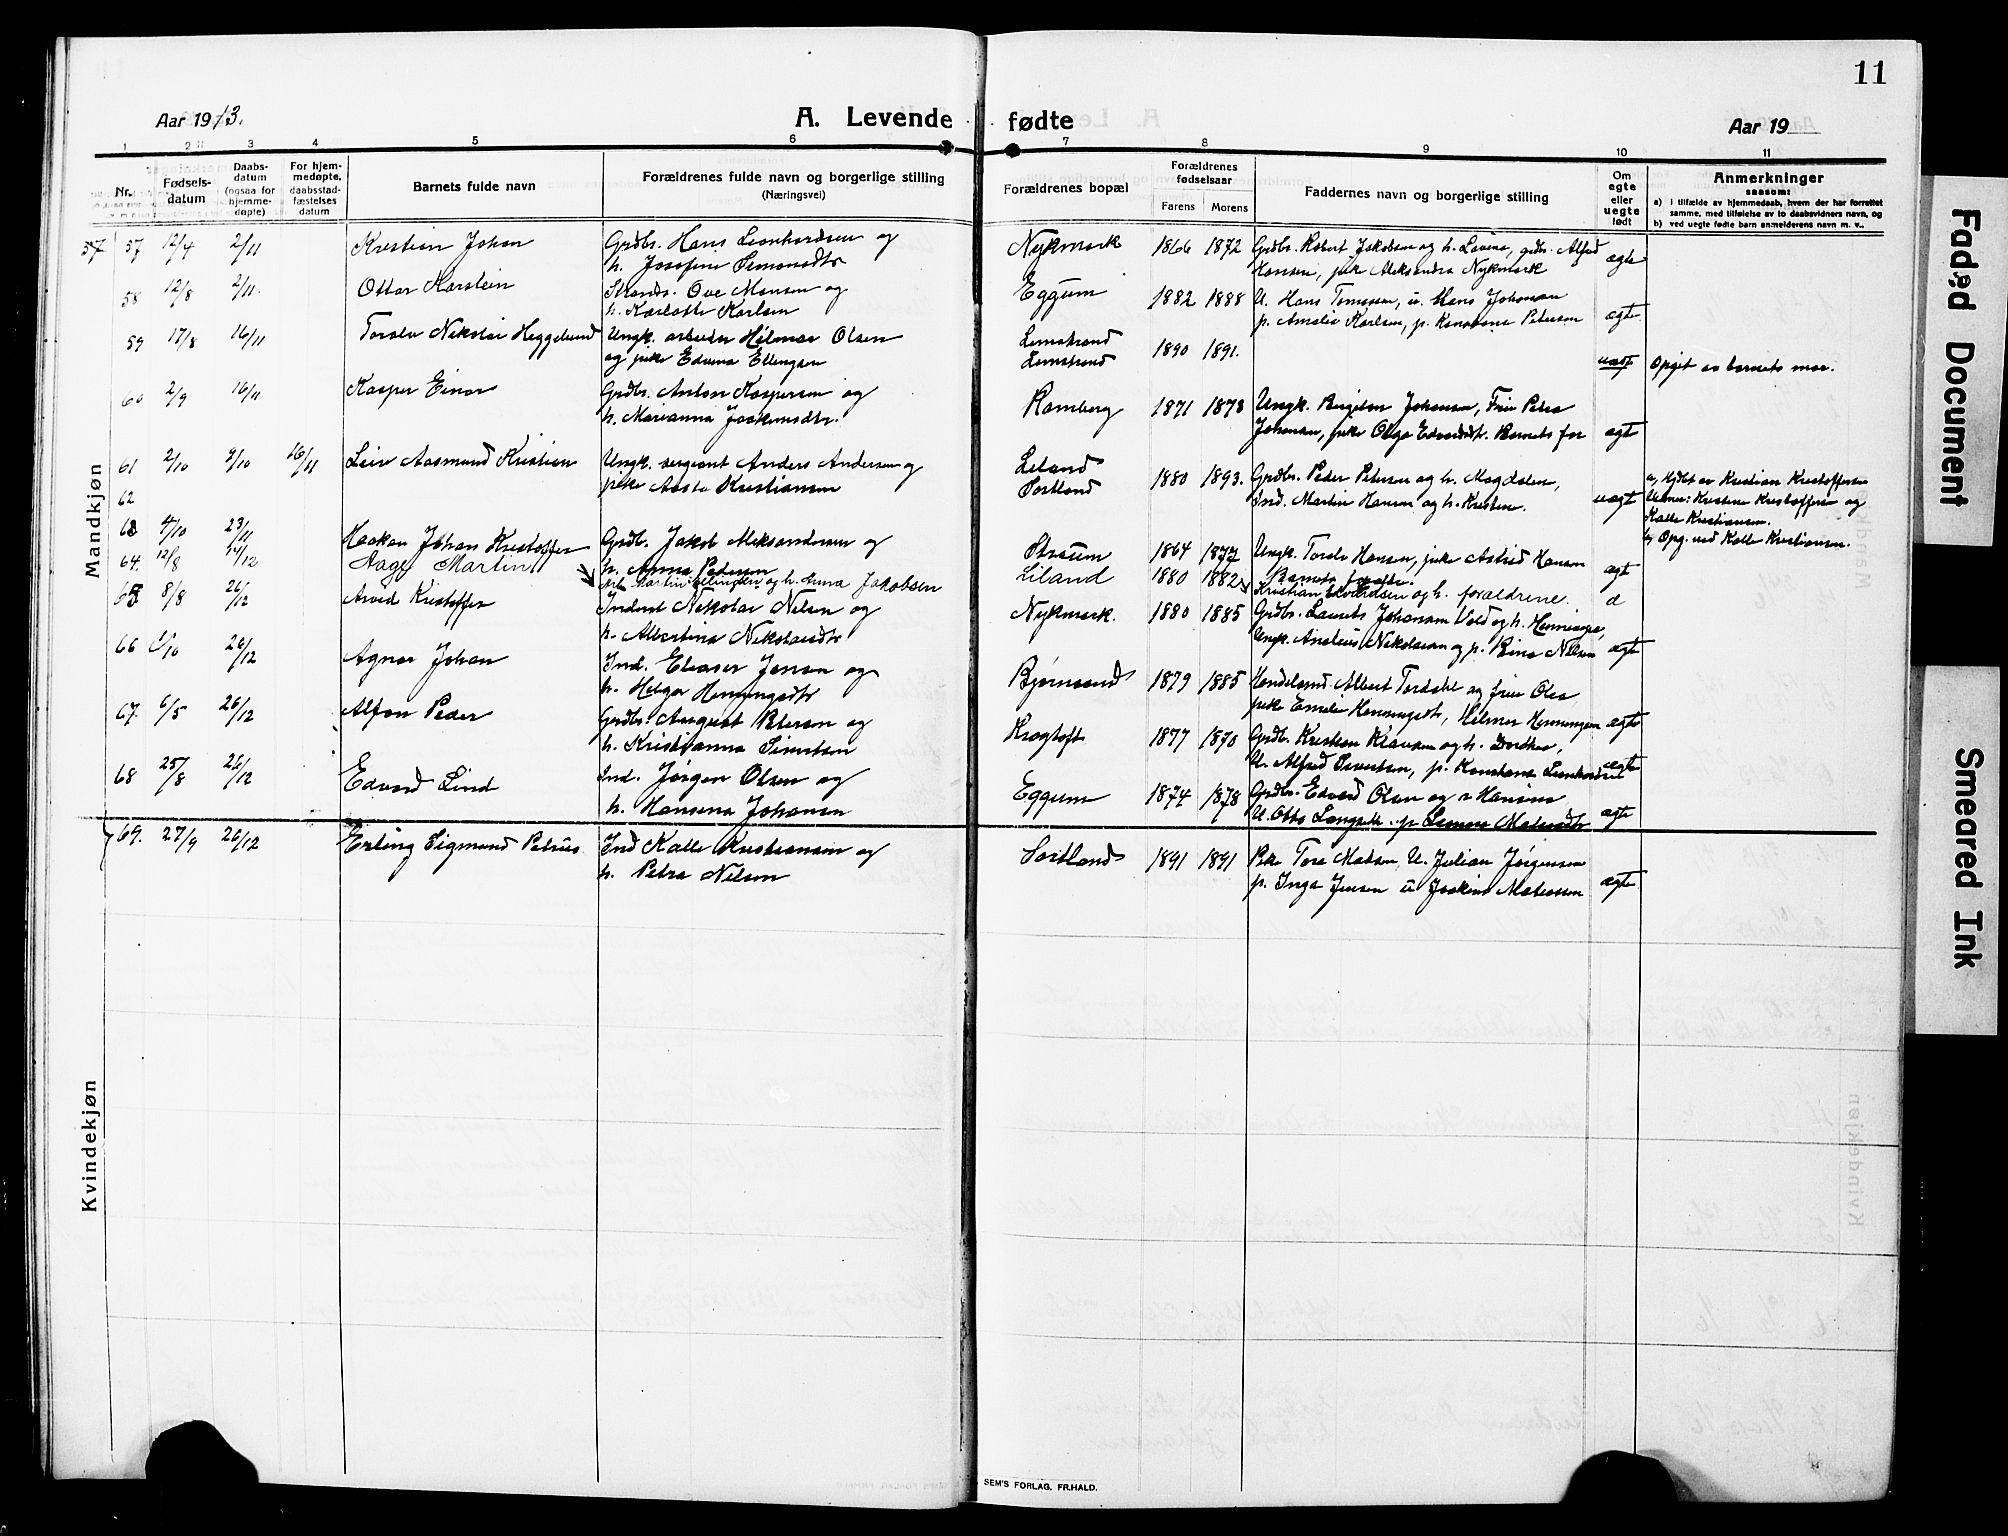 11
Aar 1913.
A. Levende fødte
Aar 19
1 2 3 4 5 6 7 8 9 10 11
Nr.
Fødsels-
datum
Daabs-
datum
(ogsaa for
hjemme-
døpte)
For hjem-
medøpte,
daabsstad-
fæstelses
datum
Barnets fulde navn
Forældrenes fulde navn og borgerlige stilling
(Næringsvei)
Forældrenes bopæl
Forældrenes
fødselsaar
Farens Morens
Faddernes navn og borgerlige stilling
Om
egte
eller
uegte
født
Anmerkninger
saasom:
a) i tilfælde av hjemmedaab, hvem der har forrettet
samme, med tilføielse av to daabsvidners navn, og
b) ved uegte fødte barn anmelderens navn m. v..
Mandkjøn
57 57 12/4 2/11 Kristian Johan Grdbr. Hans Leonhardsen og Nykmark 1866 1872 Grdbr. Robert Jakobsen og h. Lovina, grdbr. Alfred
h. Josefine Simonsdtr Hansen, pike Aleksandra Nykmark ægte
58 12/8 2/11. Ottar Karstein Strands. Ove Monsen og Eggum 1882 1888 U. Hans Tomessen, u. Hans Johansen
h. Karlotte Karlsen p. Amalie Karlsen, p. Petersen ægte
59 17/8 16/11 Toralv Nikolai Heggelund Ungk. arbeider Hilmar Olsen Lemstrand 1890 1891.
og pike Edvina Ellingsen Lemstrand uægt Opgit av barnets mor.
60 2/9 16/11 Kasper Einar Grdbr. Anton Kaspersen og Ramberg 1871 1873 Ungk. Birgiton Johansen, Frue Petra
h. Marianna Joakimsdtr. Johansen, pike Olga Edvardsdtr. Barnets far ægt
61 2/10 9/10 16/11 Leiv Aasmund Kristian Ungk. sergeant Anders Andersen og Liland 1880 1893. Grdbr. Peder Petersen og h. Magdalen,
pike Aasta Kristiansen Sortland Ind. Martin Hansen og h. Kristine. uægt
a, Hjdøbt av Kristian Kristoffersen
Vidner: Kristine Kristoffersen og
Kalle Kristiansen.
b, Opg. ved Kalle Kristiansen.
62
63 4/10 23/11 Haakon Johan Kristoffer Grdb. Jakob Aleksandersen og Straum 1864 1877 Ungk. Toralv Hansen, pike Astrid Hansen
h. Anna Pedersen Barnets forældre. ægt
64. 12/8 14/12 Aage Martin Arb. Martin Ellingsen og h. Anna Jakobsen Liland 1880 1882 Kristian Edvardsen og h. forældrene. d
65 8/8 26/12 Arvid Kristoffer Inderst Nikolai Nilsen og Nykmark. 1880 1885 Grdbr. Laurits Johansen Vold og h. Henninga,
h. Albertina Nikolaisdtr Ungk. Anelius Nikolaisen og p. Rina Nilsen ægte
66 1/10 26/12 Agnar Johan Ind. Eliaser Jensen og Bjørnsand 1879 1885 Handelsmd Albert Tordahl og frue Olea
h. Helga Henningsdtr pike Emilie Henningsdtr, Hilmar Henningsen ægte
67. 6/5 26/12 Alfon Peder Grdbr. August Petersen og Krogtoft 1877 1870 Grdb. Kristian Klausen og h. Dorthea,
h. Kristianna Sivertsen U. Alfred Sivertsen, p. Konstanse ægte
68 25/8 26/12 Edvard Lind Ind. Jørgen Olsen og Eggum 1874 1878 Grdbr. Edvard Olsen og Hansine
h. Hansena Johansen U. Otto p. ægte
69. 27/9 26/12 Erling Sigmund Petrus Ind Kalle Kristiansen og Sortland 1891 1891 Pike Tora Madsen, U. Julian Jørgensen
h. Petra Nilsen p. Inga Jensen u Joakim Mateassen ægte
Kvindekjøn
SEM'S FORLAG, FR.HALD.
Faded Document
Smeared Ink